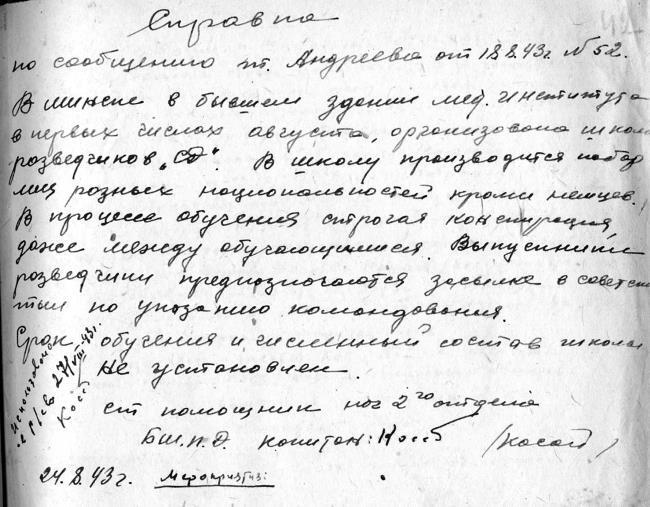 Справка
по сообщению т. Андреева от 18.8.43г. №52.
В Минске в бывшем здании мед. института
в первых числах августа, организована школа
розведчиков „СД“. В школу производится набор
лиц розных национальностей кроми немцев.
В процессе обучения строгая конспирация
даже между обучающимися. Выпускники
розведчики предназначаются засылке в советский
тыл по указанию командования.
Срок обучения и численный состав школы
не установлен.
ст помощник нач 2го отдела
БШПД капитан: Косой (Косой)
24.8.43г. Мероприятия:
Использовано
в р/св 27/VIII-43г.
Косой
42